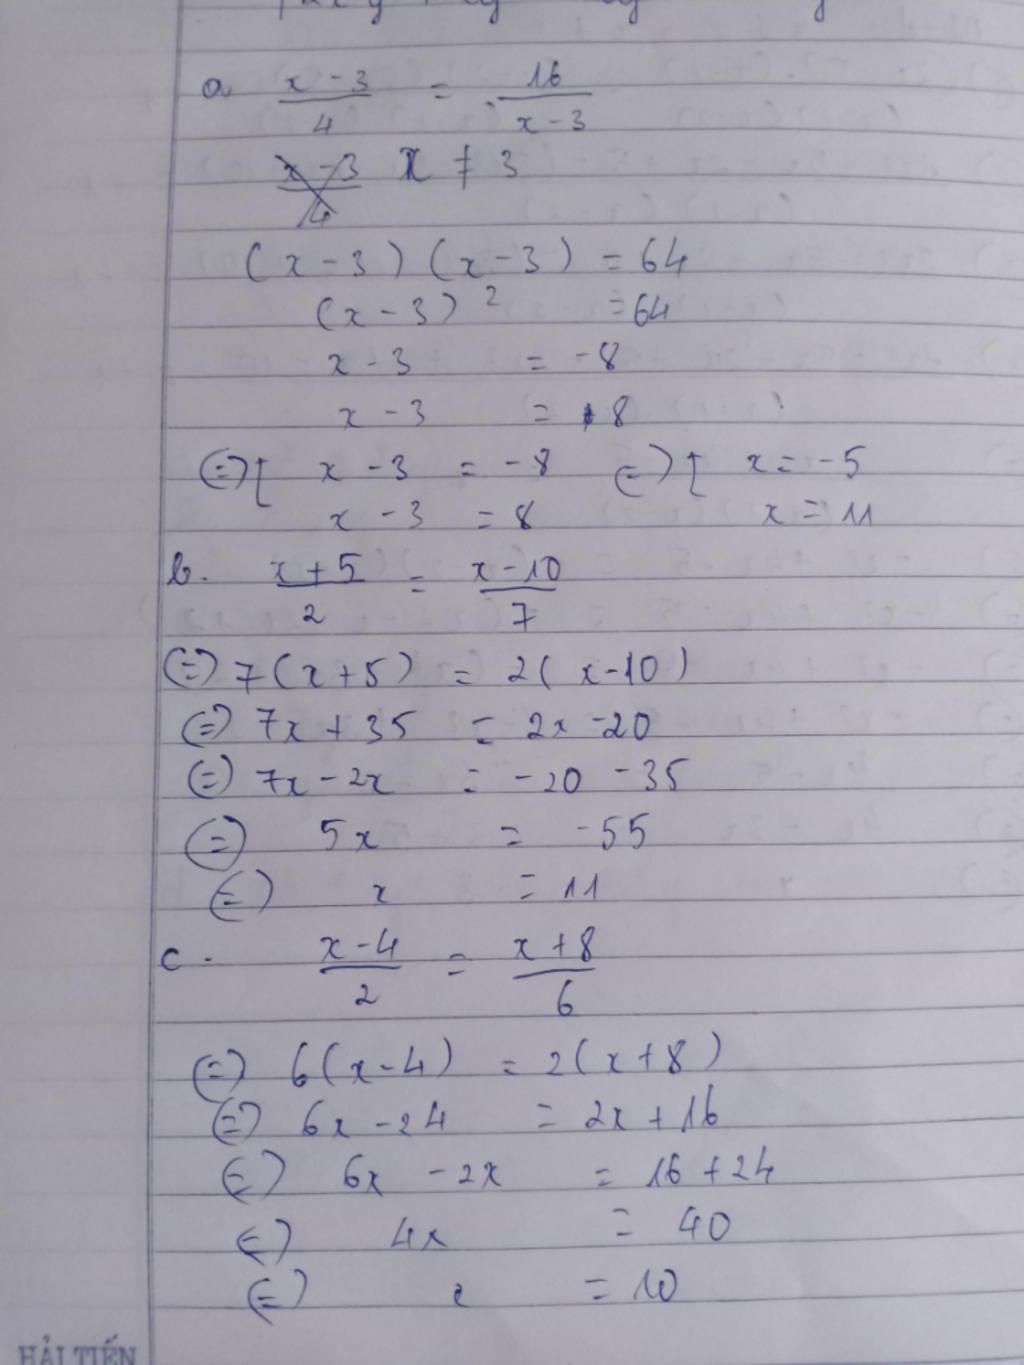 a x - 3 / 4 = 16 / x - 3
x - 3 / 4 x ≠ 3
(x - 3) (x - 3) = 64
(x - 3)² = 64
x - 3 = -8
x - 3 = 8
⇔ [ x - 3 = -8 ⇔ [ x = -5
x - 3 = 8 x = 11
b. x + 5 / 2 = x - 10 / 7
⇔ 7(x + 5) = 2(x - 10)
⇔ 7x + 35 = 2x - 20
⇔ 7x - 2x = -20 - 35
⇔ 5x = -55
⇔ x = 11
c. x - 4 / 2 = x + 8 / 6
⇔ 6(x - 4) = 2(x + 8)
⇔ 6x - 24 = 2x + 16
⇔ 6x - 2x = 16 + 24
⇔ 4x = 40
⇔ x = 10
HẢI TIẾN